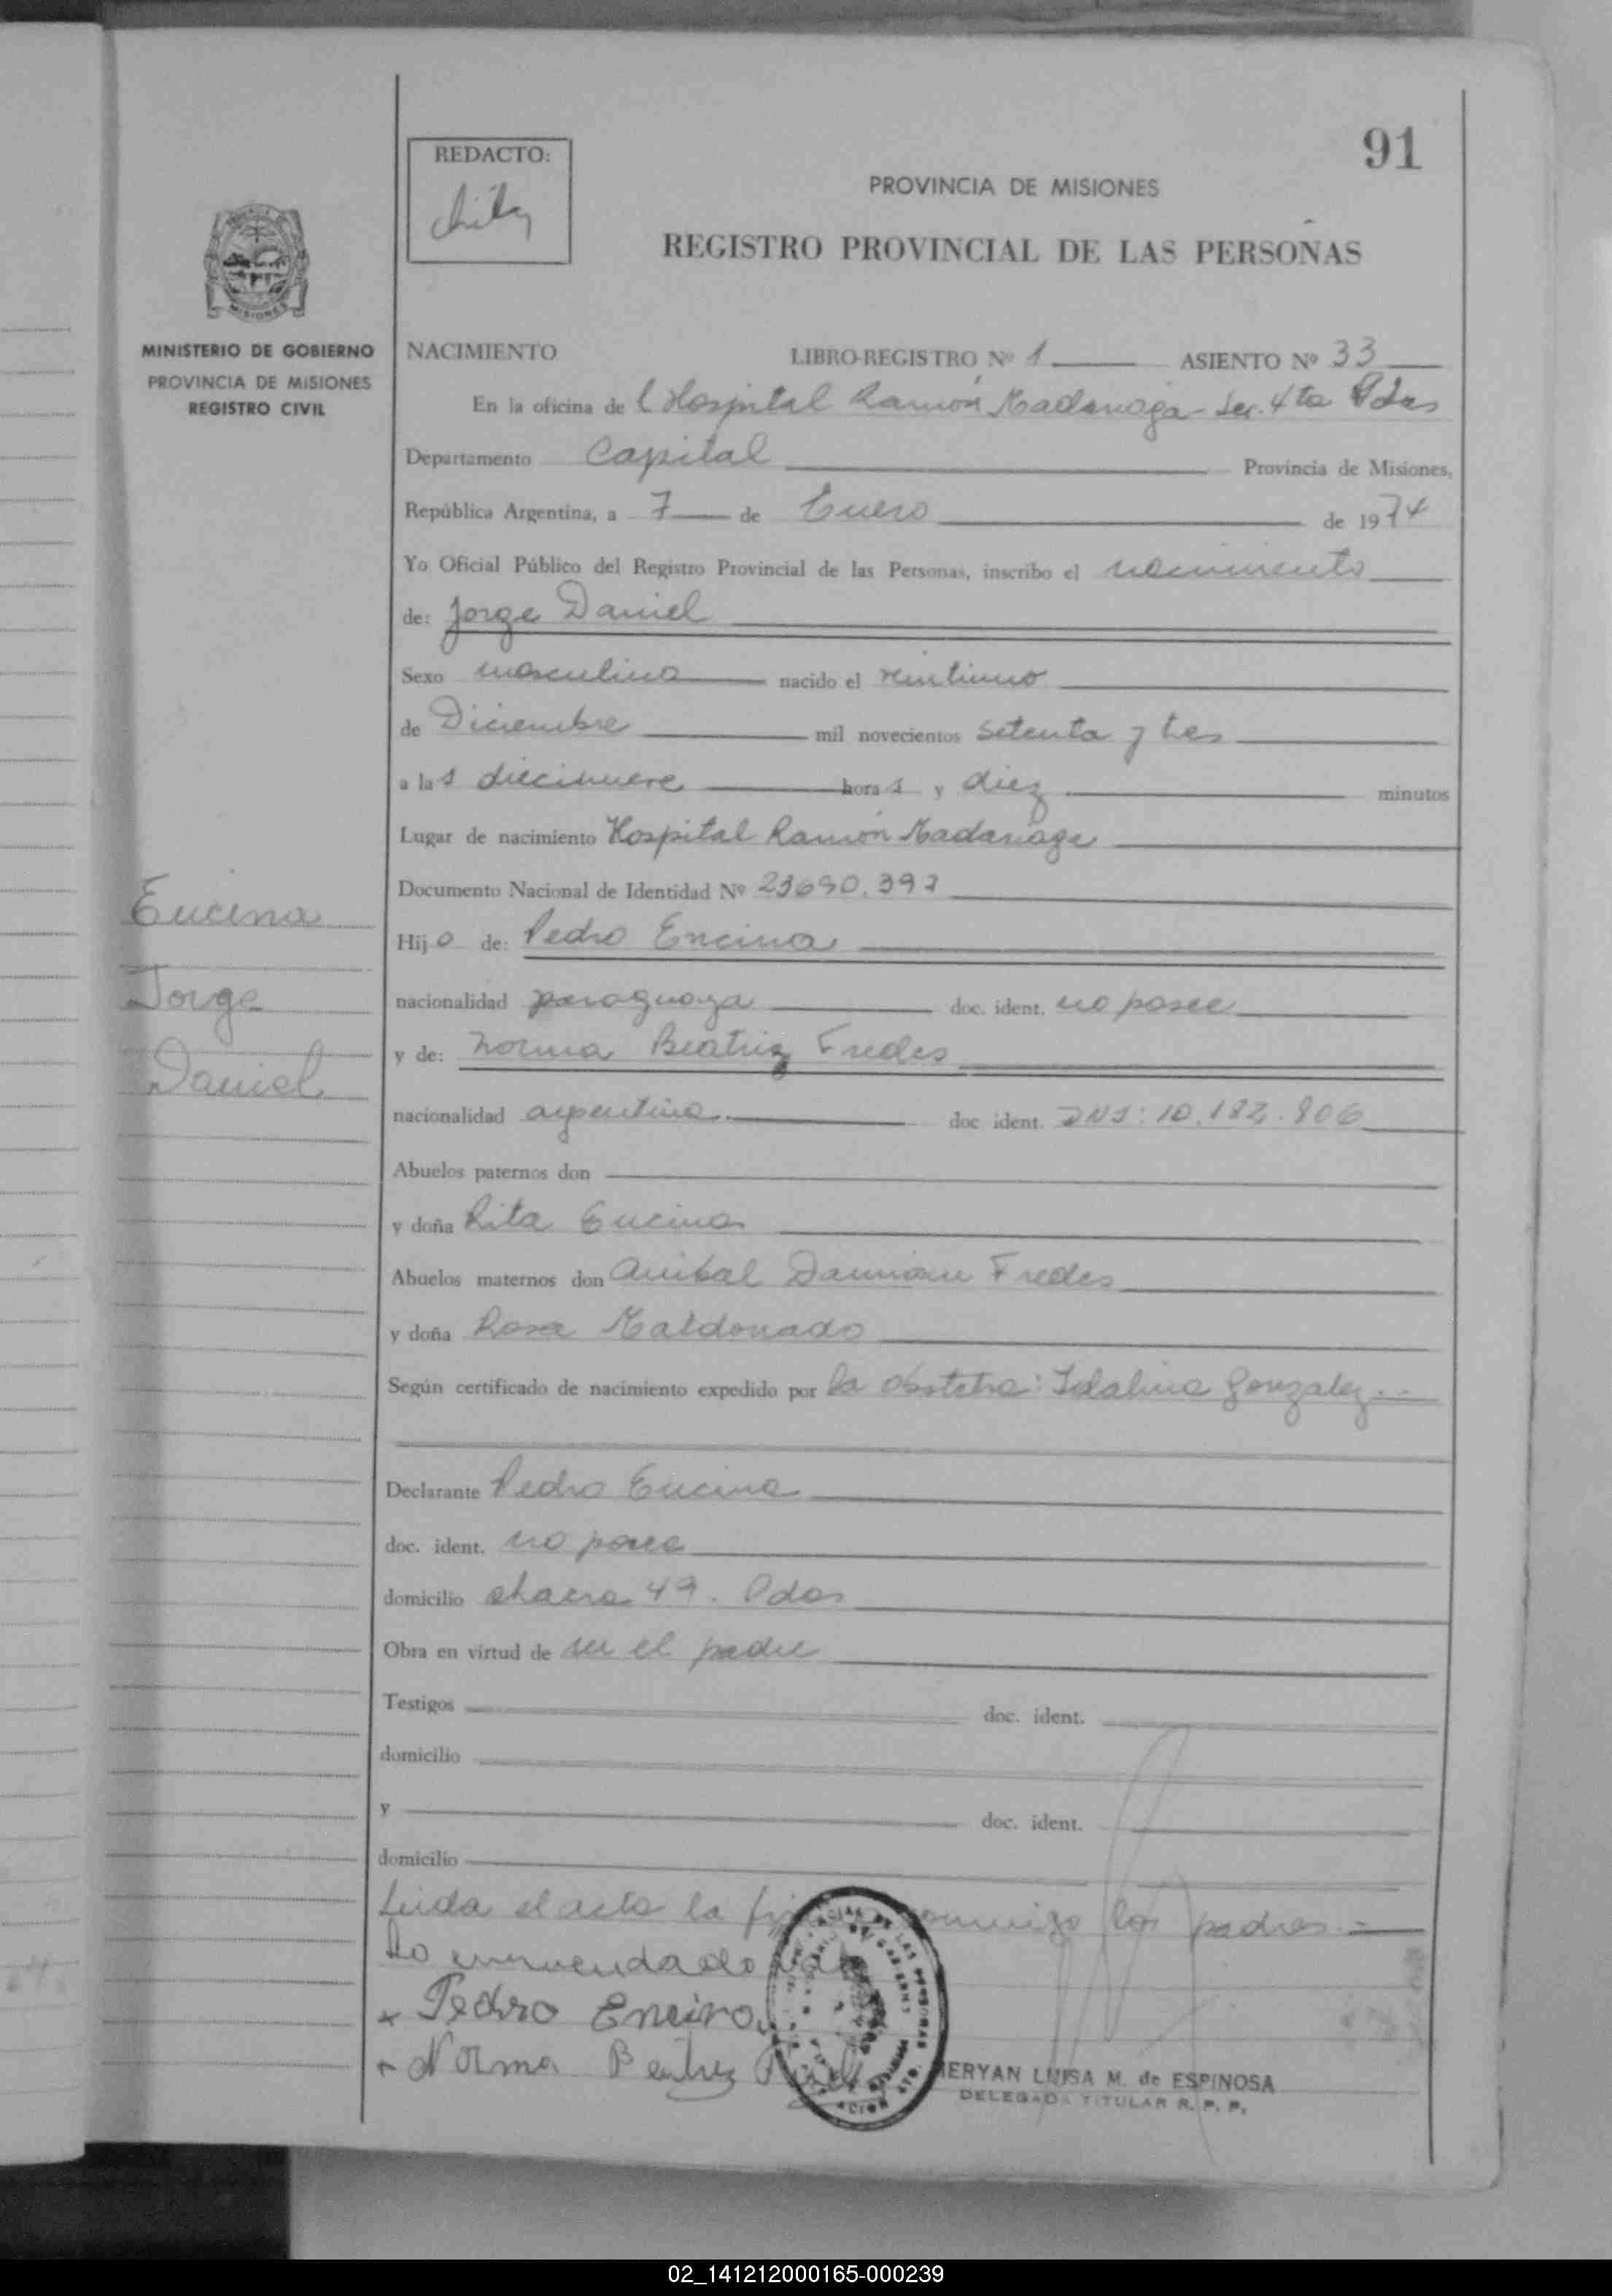 91
REDACTO:
PROVINCIA DE MISIONES
REGISTRO PROVINCIAL DE LAS PERSONAS
MISIONES
MINISTERIO DE GOBIERNO
PROVINCIA DE MISIONES
REGISTRO CIVIL
NACIMIENTO LIBRO-REGISTRO Nº 1 ASIENTO Nº 33
En la oficina de l Hospital Ramón Madariaga Sec. 4ta Pdas
Departamento Capital Provincia de Misiones,
República Argentina, a 7 de Enero de 1974
Yo Oficial Público del Registro Provincial de las Personas, inscribo el nacimiento
de: Jorge Daniel
Sexo masculino nacido el veintiuno
de Diciembre mil novecientos setenta y tres
a las diecinueve horas y diez minutos
Lugar de nacimiento Hospital Ramón Madariaga
Documento Nacional de Identidad Nº 23690.397
Encina
Jorge
Daniel
Hijo de: Pedro Encina
nacionalidad paraguaya doc. ident. no posee
y de: Norma Beatriz Fredes
nacionalidad argentina doc ident. DNI: 10.182.806
Abuelos paternos don
y doña Rita Encina
Abuelos maternos don Anibal Damian Fredes
y doña Rosa Maldonado
Según certificado de nacimiento expedido por la obstetra: Idalina Gonzalez
Declarante Pedro Encina
doc. ident. no posee
domicilio chacra 49. Pdas
Obra en virtud de ser el padre
Testigos doc. ident.
domicilio
y doc. ident.
domicilio
Leida el acta la conmigo los padres.=
Lo enmendado
x Pedro Encina
x Norma Beatriz
MERYAN LUISA M. de ESPINOSA
DELEGADA TITULAR R. P. P.
02_141212000165-000239